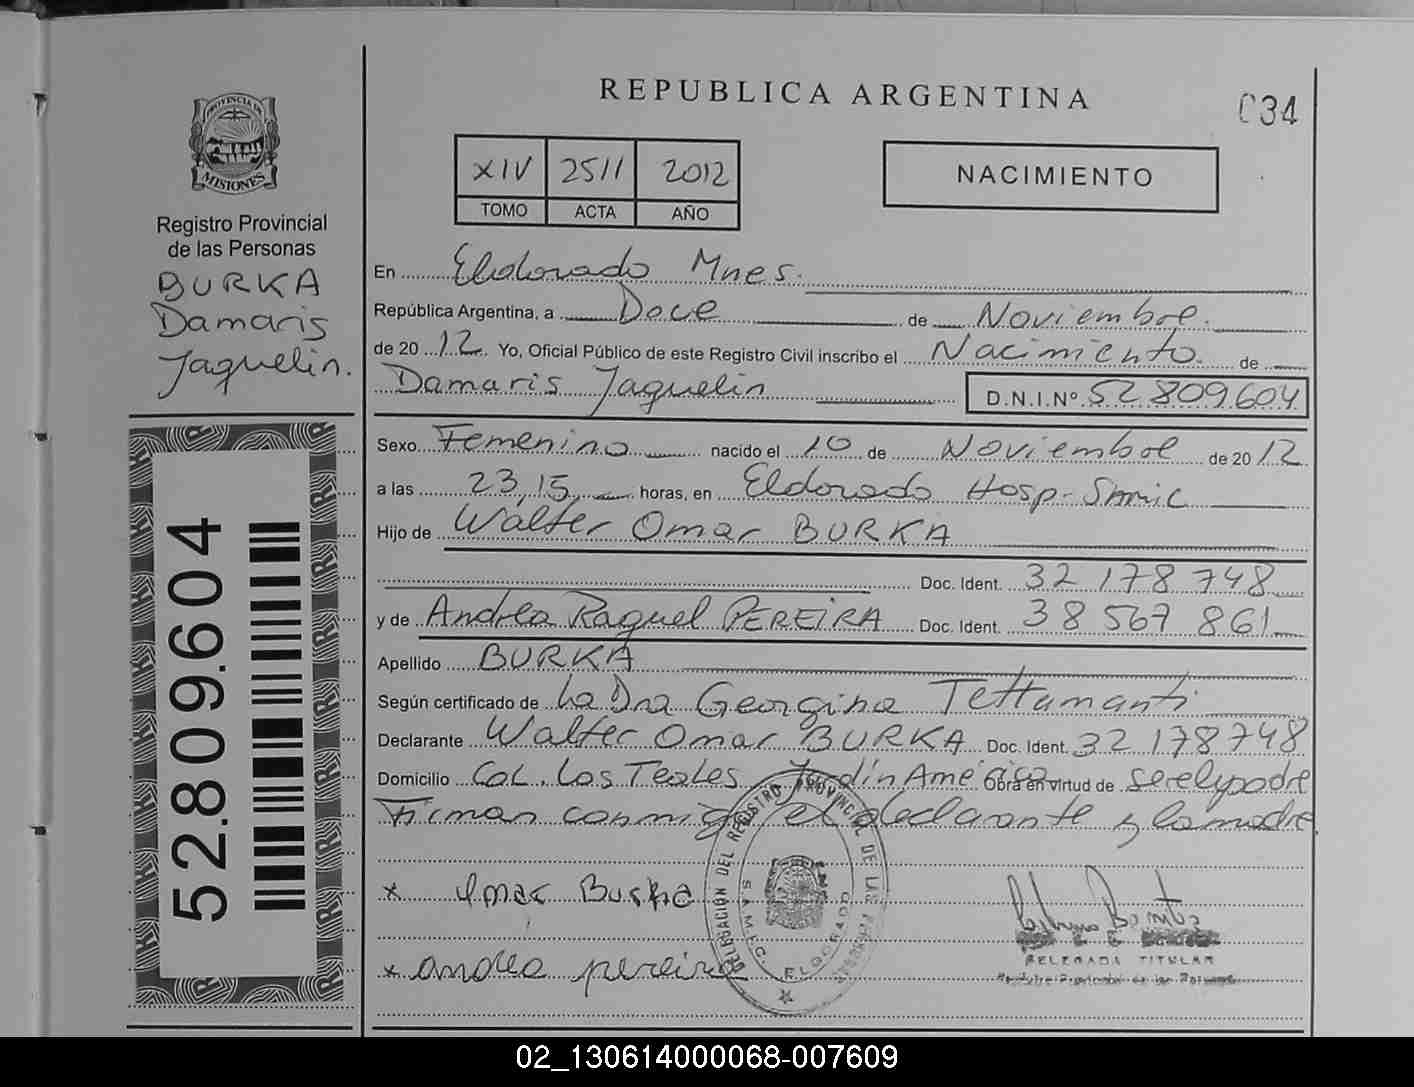 REPUBLICA ARGENTINA
034
PROVINCIA DE
MISIONES
Registro Provincial
de las Personas
BURKA
Damaris
Jaquelin.
52.809.604
XIV 2511 2012
TOMO ACTA AÑO
NACIMIENTO
En Eldorado Mnes.
República Argentina, a Doce de Noviembre.
de 2012. Yo, Oficial Público de este Registro Civil inscribo el Nacimiento. de
Damaris Jaquelin D.N.I.Nº 52 809 604
Sexo Femenino nacido el 10 de Noviembre de 2012
a las 23,15 horas, en Eldorado Hosp-Samic
Hijo de Walter Omar BURKA
Doc. Ident. 32 178 748
y de Andrea Raquel PEREIRA Doc. Ident. 38 567 861
Apellido BURKA
Según certificado de La Dra Georgina Tettamanti
Declarante Walter Omar BURKA Doc. Ident. 32 178 748
Domicilio Col. Los Teales Jardín América Obra en virtud de ser el padre
Firman conmigo el declarante y la madre
x Omar Burka
x andrea pereira
DELEGACIÓN DEL REGISTRO PROVINCIAL DE LAS PERSONAS
S.A.M.I.C. ELDORADO
DELEGADA TITULAR
Registro Provincial de las Personas
02_130614000068-007609